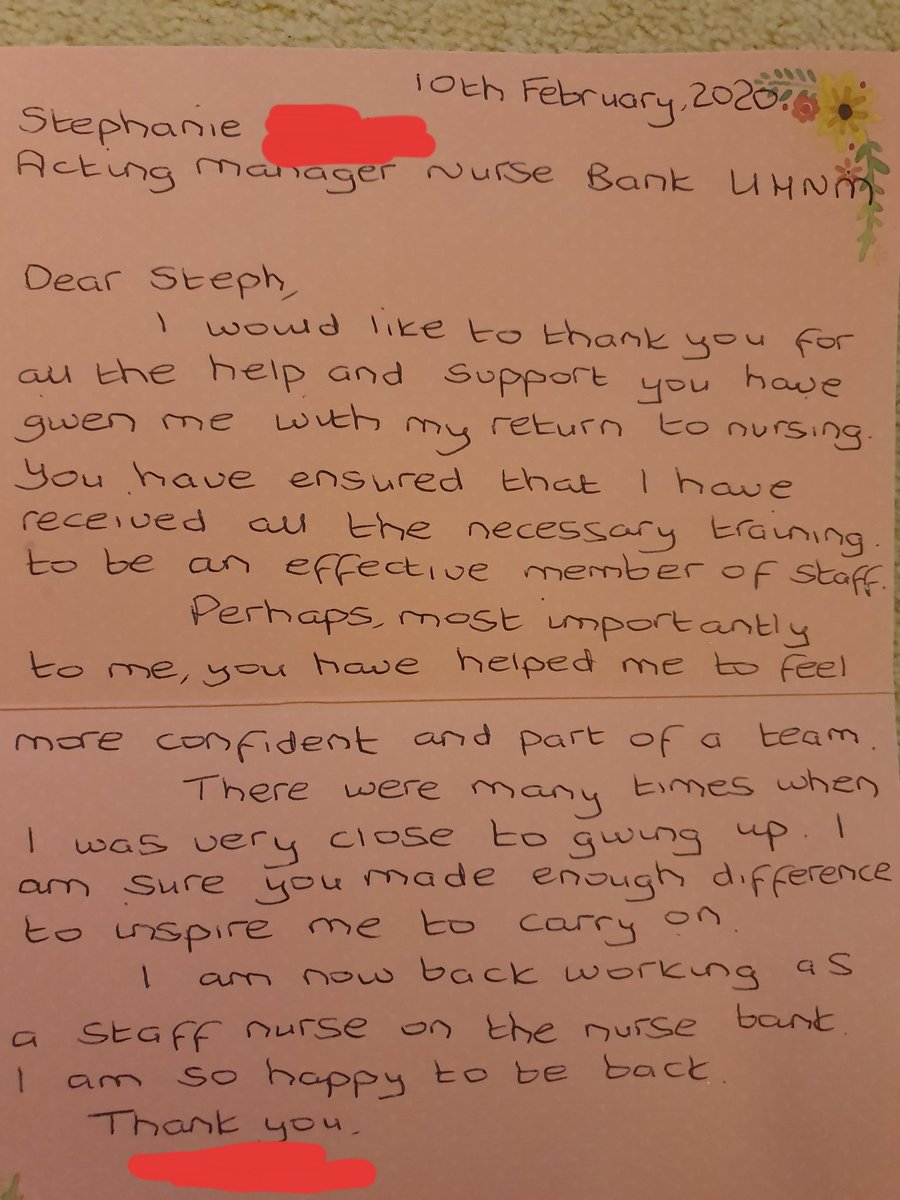 10th February, 2020
Stephanie
Acting Manager Nurse Bank UHNM
Dear Steph,
I would like to thank you for
all the help and support you have
given me with my return to nursing.
You have ensured that I have
received all the necessary training.
to be an effective member of staff.
Perhaps, most importantly
to me, you have helped me to feel
more confident and part of a team.
There were many times when
I was very close to giving up. I
am sure you made enough difference
to inspire me to carry on.
I am now back working as
a staff nurse on the nurse bank.
I am so happy to be back.
Thank you.